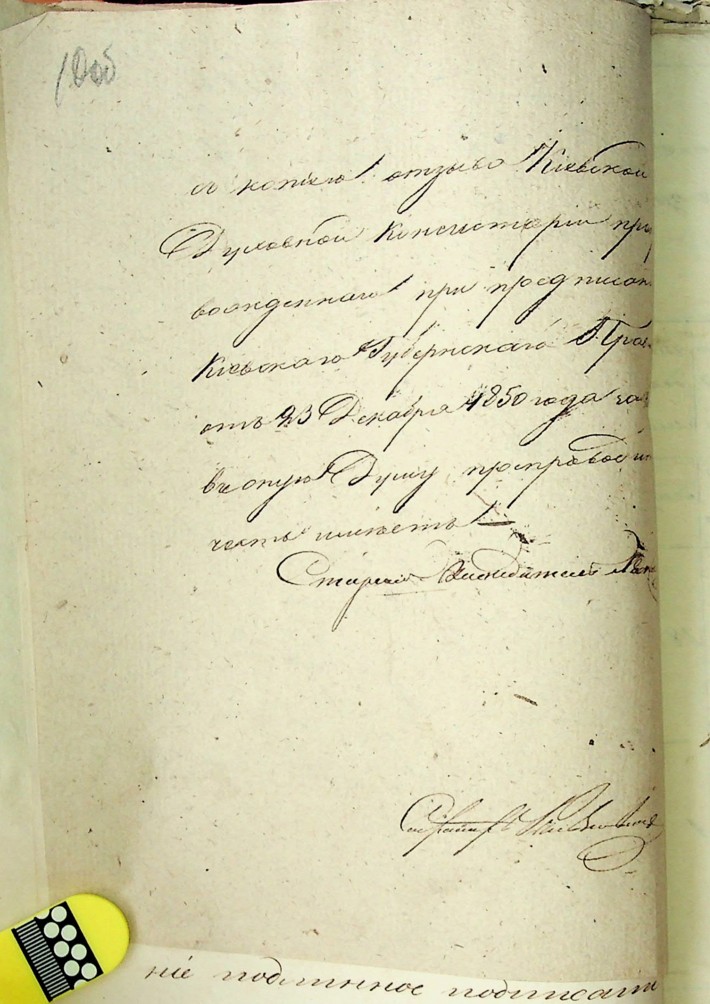 съ копіею отзыва Кіевской
Духовной Консисторіи пре
вожденнаго при предписан
Кіевскаго Губернскаго Прав
отъ 23 Декабря 1850 года за
въ оную Думу препроводи
честь имѣетъ
Старшій Засѣдатель
ніе подлинное подписали